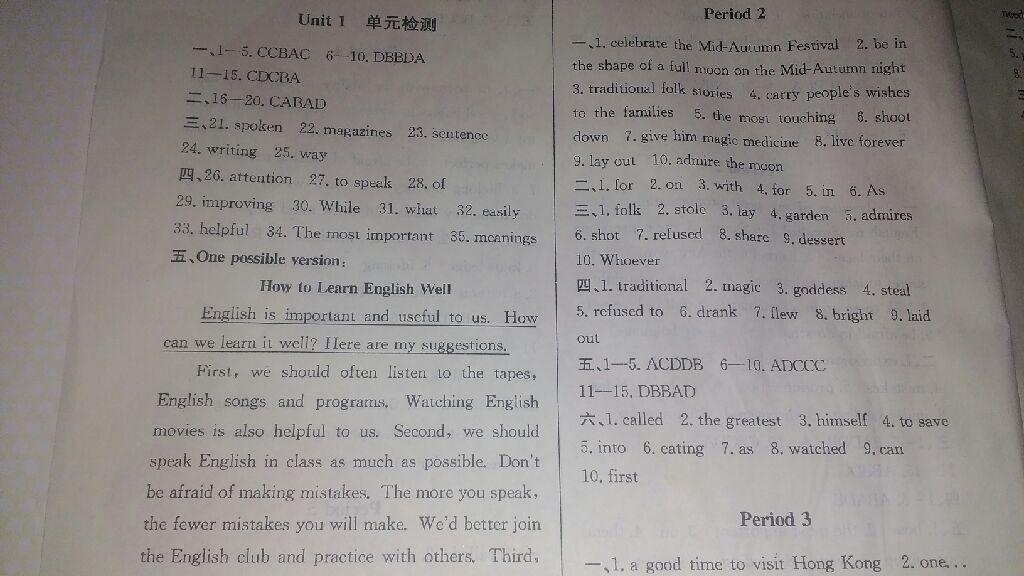 Unit 1 单元检测
一、1—5. CCBAC 6—10. DBBDA
11—15. CDCBA
二、16—20. CABAD
三、21. spoken 22. magazines 23. sentence
24. writing 25. way
四、26. attention 27. to speak 28. of
29. improving 30. While 31. what 32. easily
33. helpful 34. The most important 35. meanings
五、One possible version:
How to Learn English Well
English is important and useful to us. How
can we learn it well? Here are my suggestions.
First, we should often listen to the tapes,
English songs and programs. Watching English
movies is also helpful to us. Second, we should
speak English in class as much as possible. Don't
be afraid of making mistakes. The more you speak,
the fewer mistakes you will make. We'd better join
the English club and practice with others. Third,
Period 2
一、1. celebrate the Mid-Autumn Festival 2. be in
the shape of a full moon on the Mid-Autumn night
3. traditional folk stories 4. carry people's wishes
to the families 5. the most touching 6. shoot
down 7. give him magic medicine 8. live forever
9. lay out 10. admire the moon
二、1. for 2. on 3. with 4. for 5. in 6. As
三、1. folk 2. stole 3. lay 4. garden 5. admires
6. shot 7. refused 8. share 9. dessert
10. Whoever
四、1. traditional 2. magic 3. goddess 4. steal
5. refused to 6. drank 7. flew 8. bright 9. laid
out
五、1—5. ACDDB 6—10. ADCCC
11—15. DBBAD
六、1. called 2. the greatest 3. himself 4. to save
5. into 6. eating 7. as 8. watched 9. can
10. first
Period 3
一、1. a good time to visit Hong Kong 2. one...